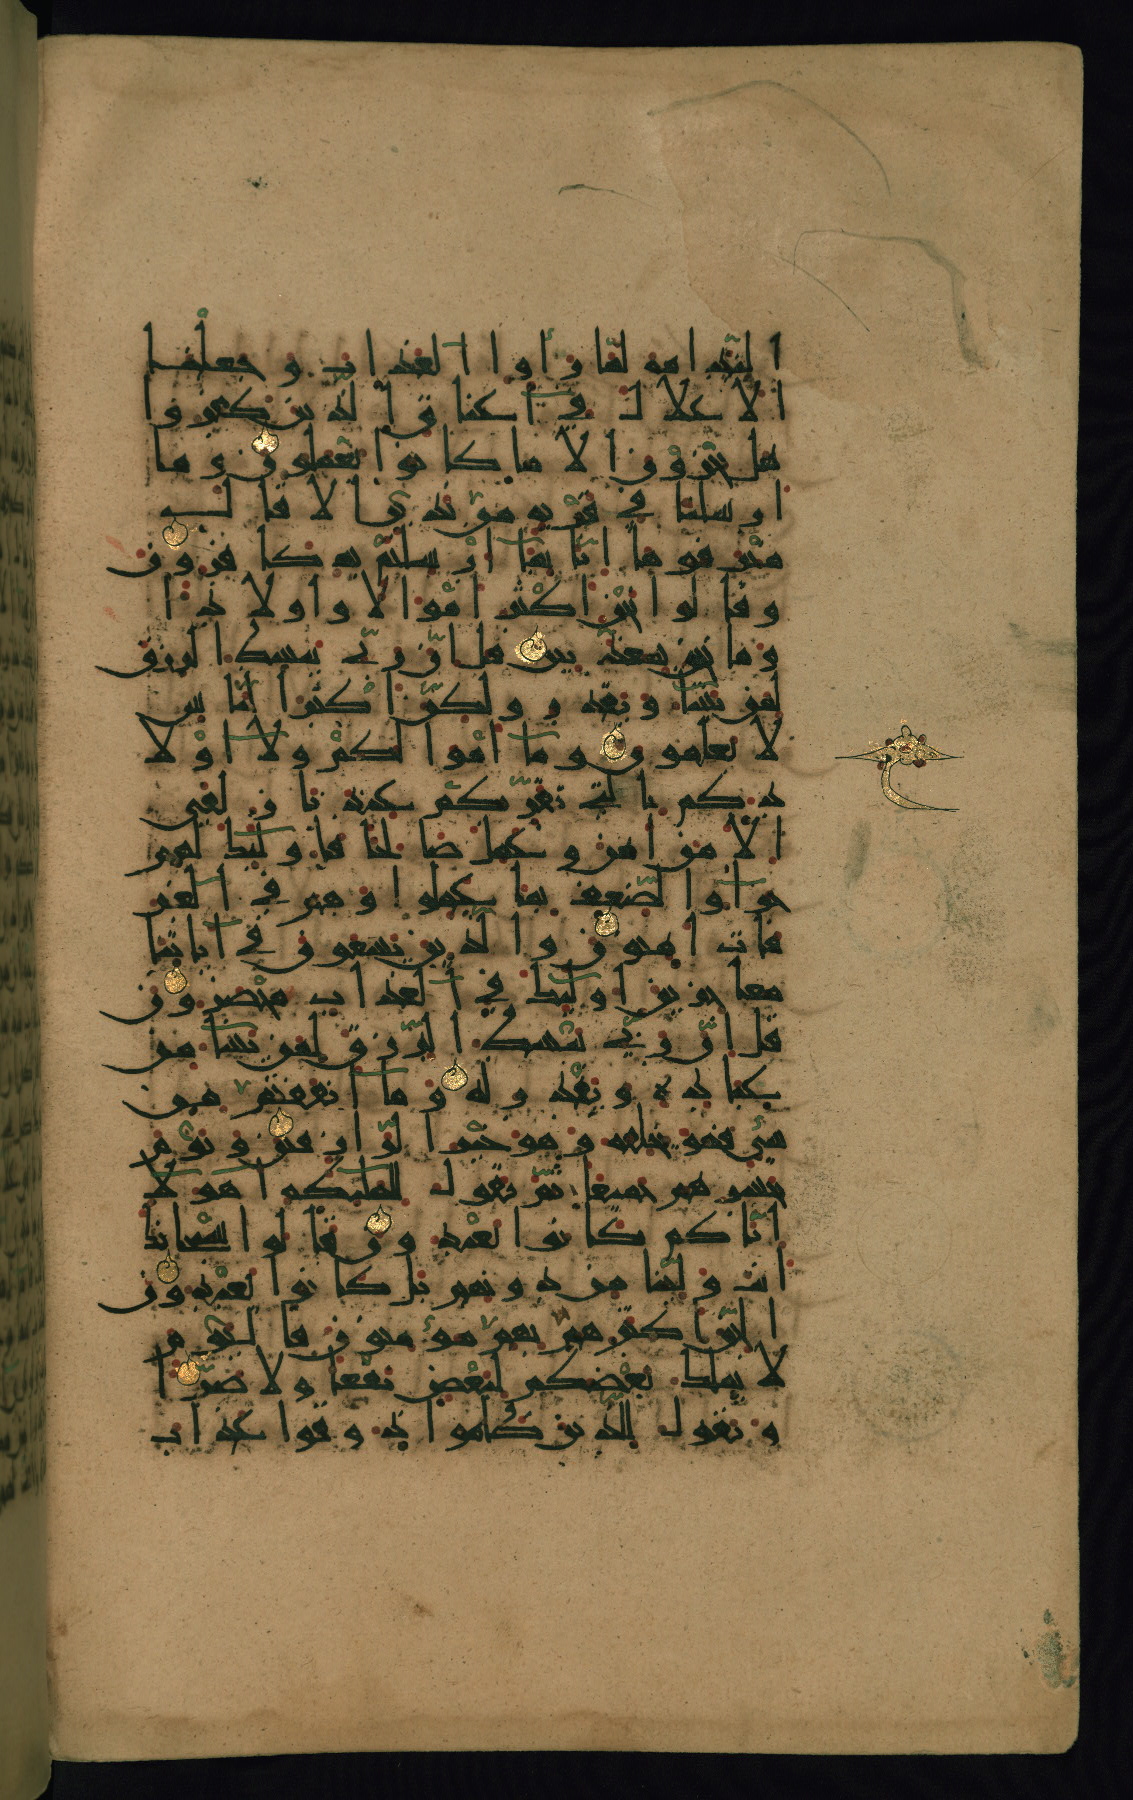 الندامة لما رأوا العذاب وجعلنا
الاغلال في اعناق الذين كفروا
هل يجزون الا ما كانوا يعملون وما
ارسلنا في قرية من نذير الا قال
مترفوها انا بما ارسلتم به كافرون
وقالوا نحن اكثر اموالا واولادا
وما نحن بمعذبين قل ان ربي يبسط الرزق
لمن يشاء ويقدر ولكن اكثر الناس
لا يعلمون وما اموالكم ولا اولا
دكم بالتي تقربكم عندنا زلفى
الا من امن وعمل صالحا فاولئك لهم
جزاوا الضعف بما عملوا وهم في الغر
فات امنون والذين يسعون في اياتنا
معاجزين اولئك في العذاب محضرون
قل ان ربي يبسط الرزق لمن يشاء من
عباده ويقدر له وما انفقتم من
شيء فهو يخلفه وهو خير الرازقين ويوم
يحشرهم جميعا ثم يقول للملئكة اهؤلاء
اياكم كانوا يعبدون قالوا سبحانك
انت ولينا من دونهم بل كانوا يعبدون
الجن اكثرهم بهم مؤمنون فاليوم
لا يملك بعضكم لبعض نفعا ولا ضرا
ونقول للذين ظلموا ذوقوا عذاب